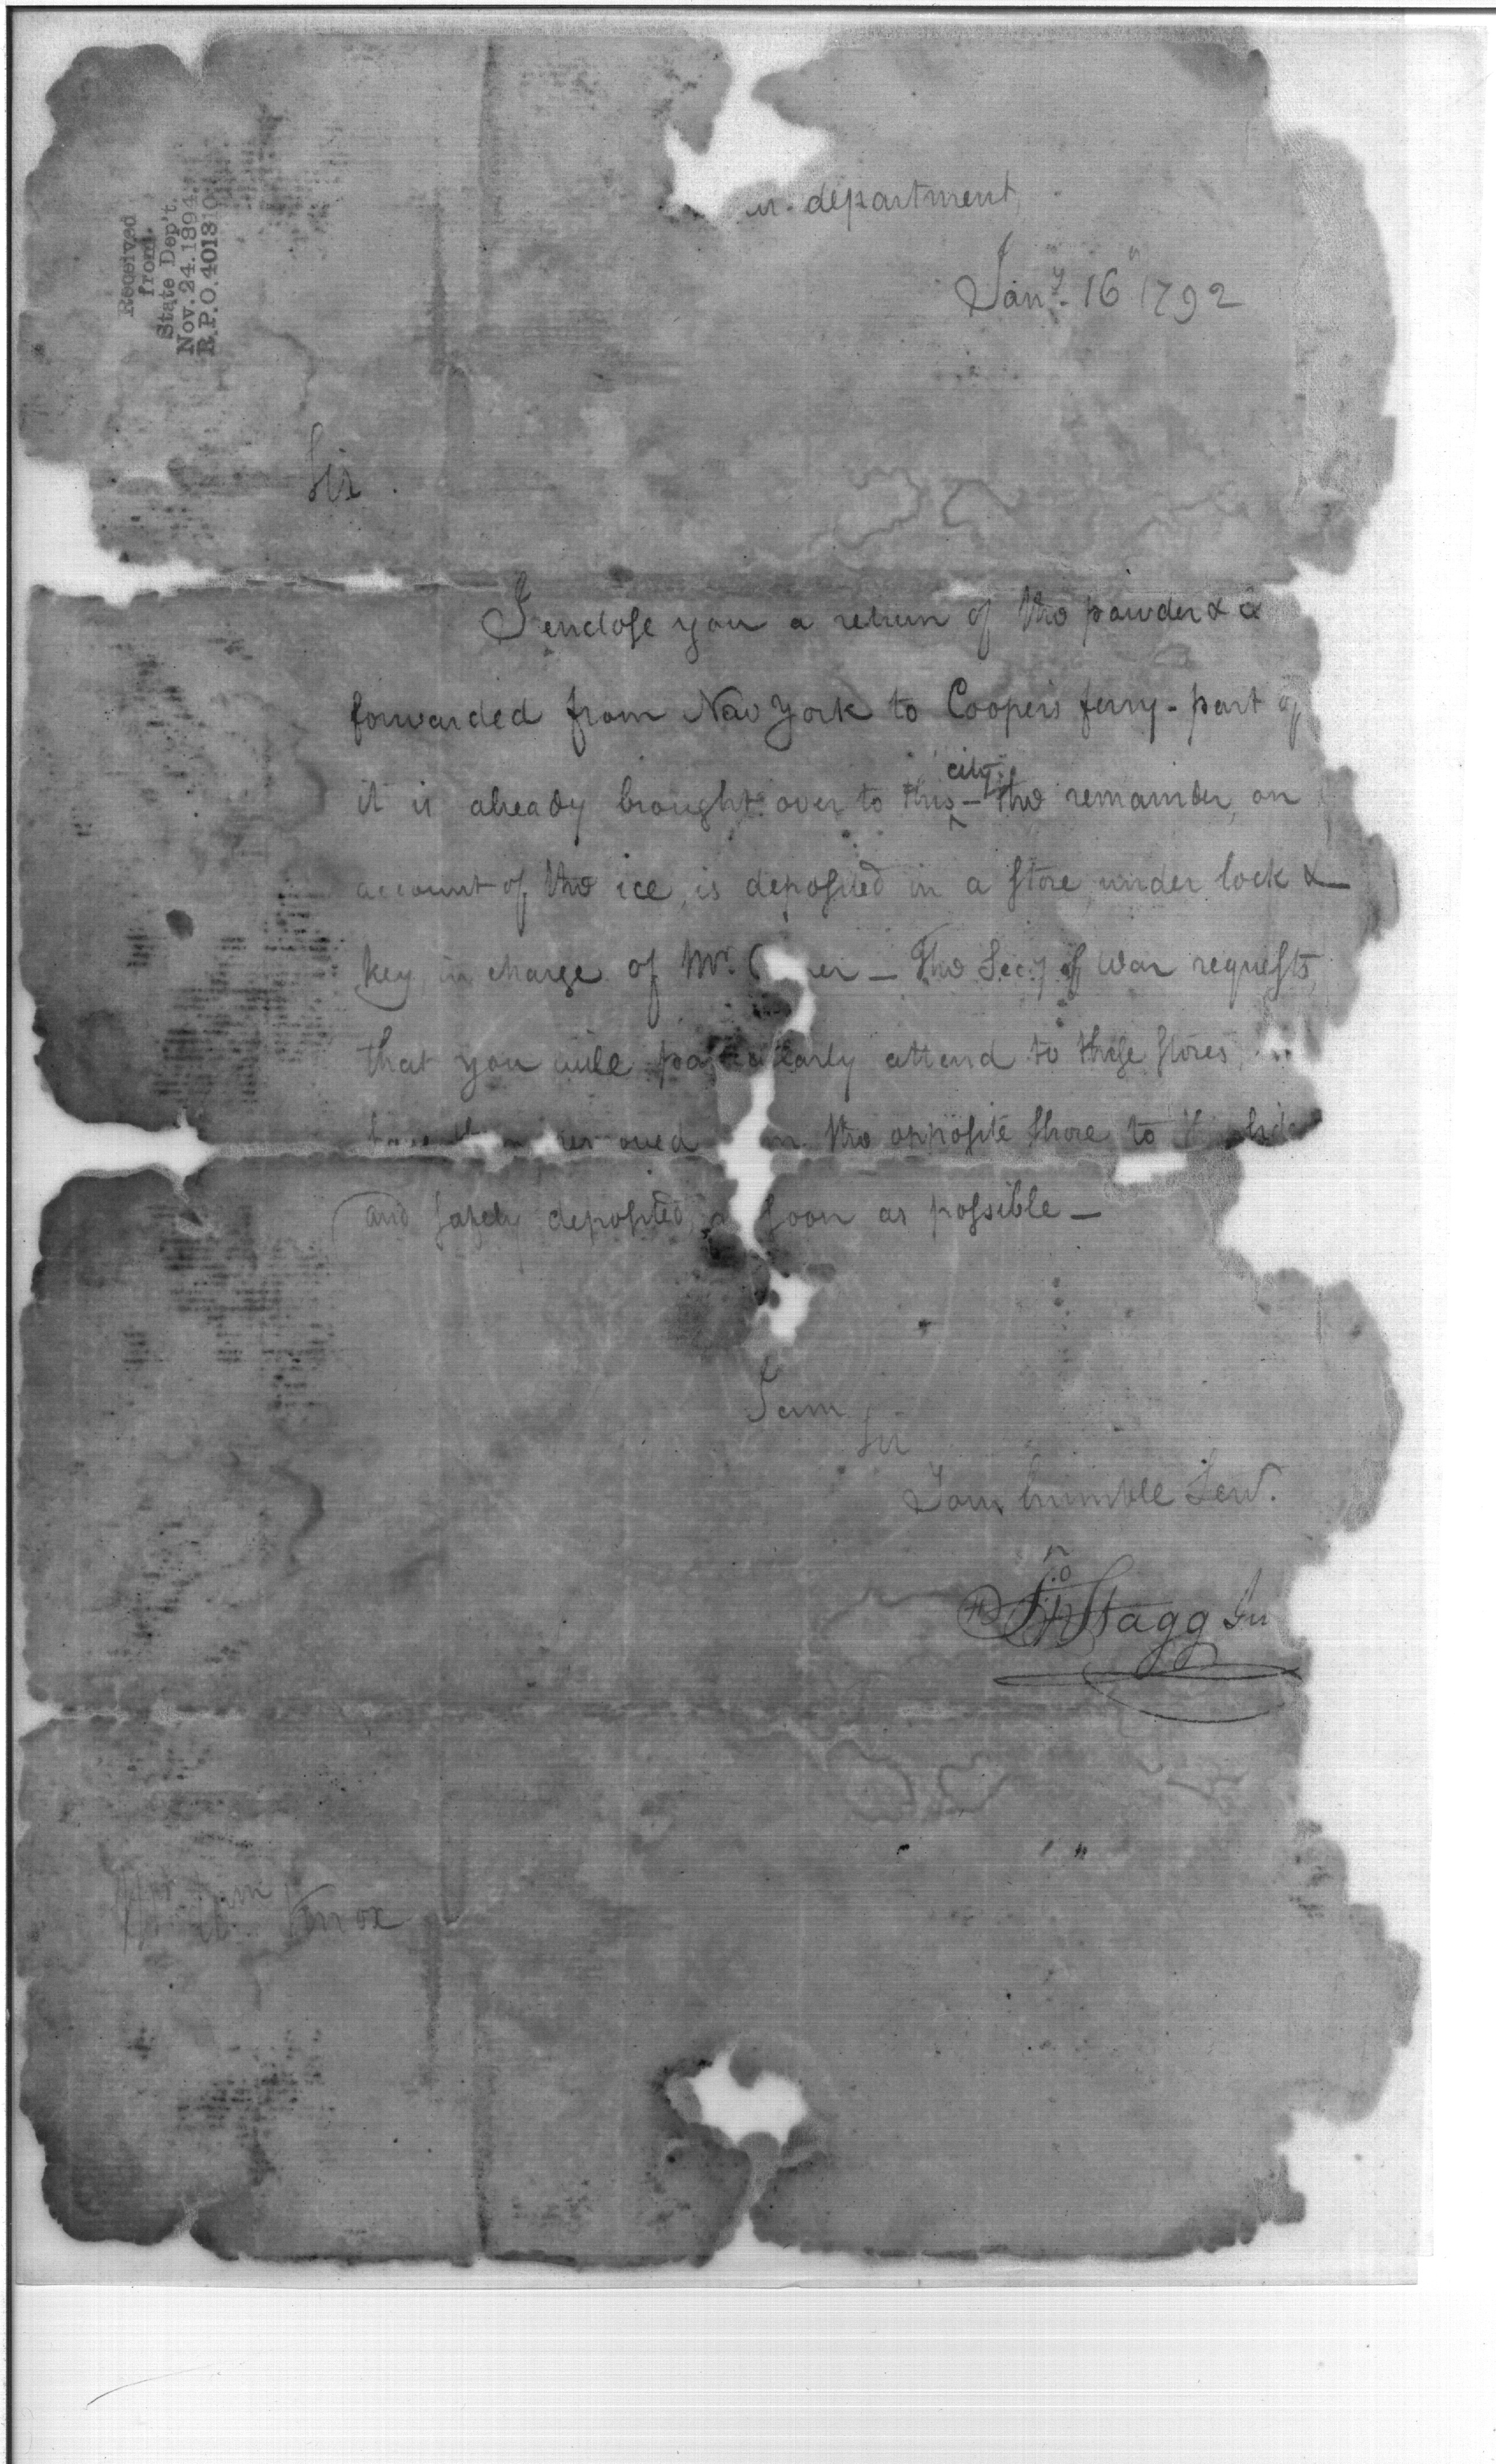 Received
from
State Dep't.
Nov. 24. 1894.
R.P.O. 401310
department
Jan.y 16 1792
Sir.
I enclose you a return of the powder & c
forwarded from New York to Coopers ferry - part of
city
it is already brought over to this - the remainder, on
account of the ice, is deposited in a store under lock &
key in charge of Mr. — The Sec.y of War requests
that you will particularly attend to these stores
the opposite shore to
and safely deposited, soon as possible —
I am
Sir
Your humble Serv.
Jno Stagg Jur
Mr. Wm Knox